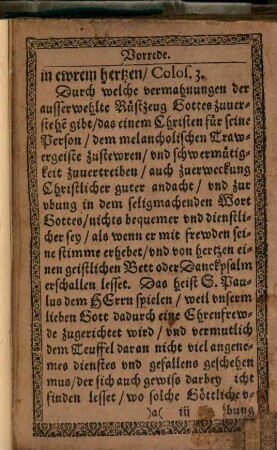 Vorrede.
in ewrem hertzen/ Colos. 3.
Durch welche vermahnungen der
ausserwehlte Rüstzeug Gottes zuuer-
stehē gibt/ das einem Christen für seine
Person/ dem melancholischen Traw-
ergeiste zustewren/ vnd schwermütig-
keit zuuertreiben/ auch zuerweckung
Christlicher guter andacht/ vnd zur
vbung in dem seligmachenden Wort
Gottes/ nichts bequemer vnd dienstli-
cher sey/ als wenn er mit frewden sei-
ne stimme erhebet/ vnd von hertzen ei-
nen geistlichen Bett oder Danckpsalm
erschallen lesset. Das heist S. Pau-
lus dem HErrn spielen/ weil vnserm
lieben Gott dadurch eine Ehrenfrew-
de zugerichtet wird/ vnd vermutlich
dem Teuffel daran nicht viel angene-
mes dienstes vnd gefallens geschehen
mus/ der sich auch gewiß darbey icht
finden lesset/ wo solche Göttliche v-
)a( iii bung